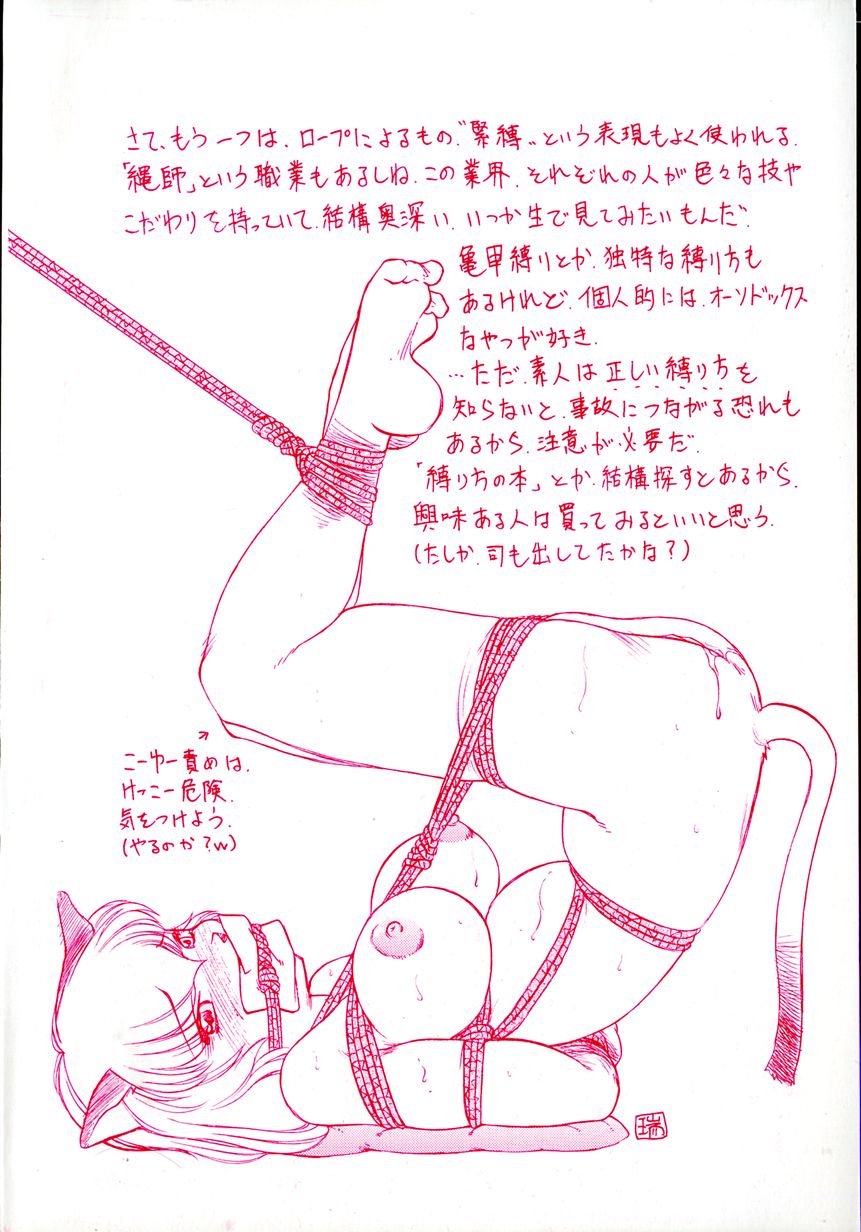 さて、もう一つは、ロープによるもの、"緊縛"という表現もよく使われる。
「縄師」という職業もあるしね。この業界、それぞれの人が色々な技や
こだわりを持っていて、結構奥深い。いつか生で見てみたいもんだ。
亀甲縛りとか、独特な縛り方も
あるけれど、個人的には、オーソドックス
なやつが好き。
…ただ、素人は正しい縛り方を
知らないと、事故につながる恐れも
あるから、注意が必要だ。
「縛り方の本」とか、結構探すとあるから、
興味ある人は買ってみるといいと思う。
(たしか、司も出してたかな?)
こーゆー責めは、
けっこー危険。
気をつけよう。
(やるのか?w)
瑞